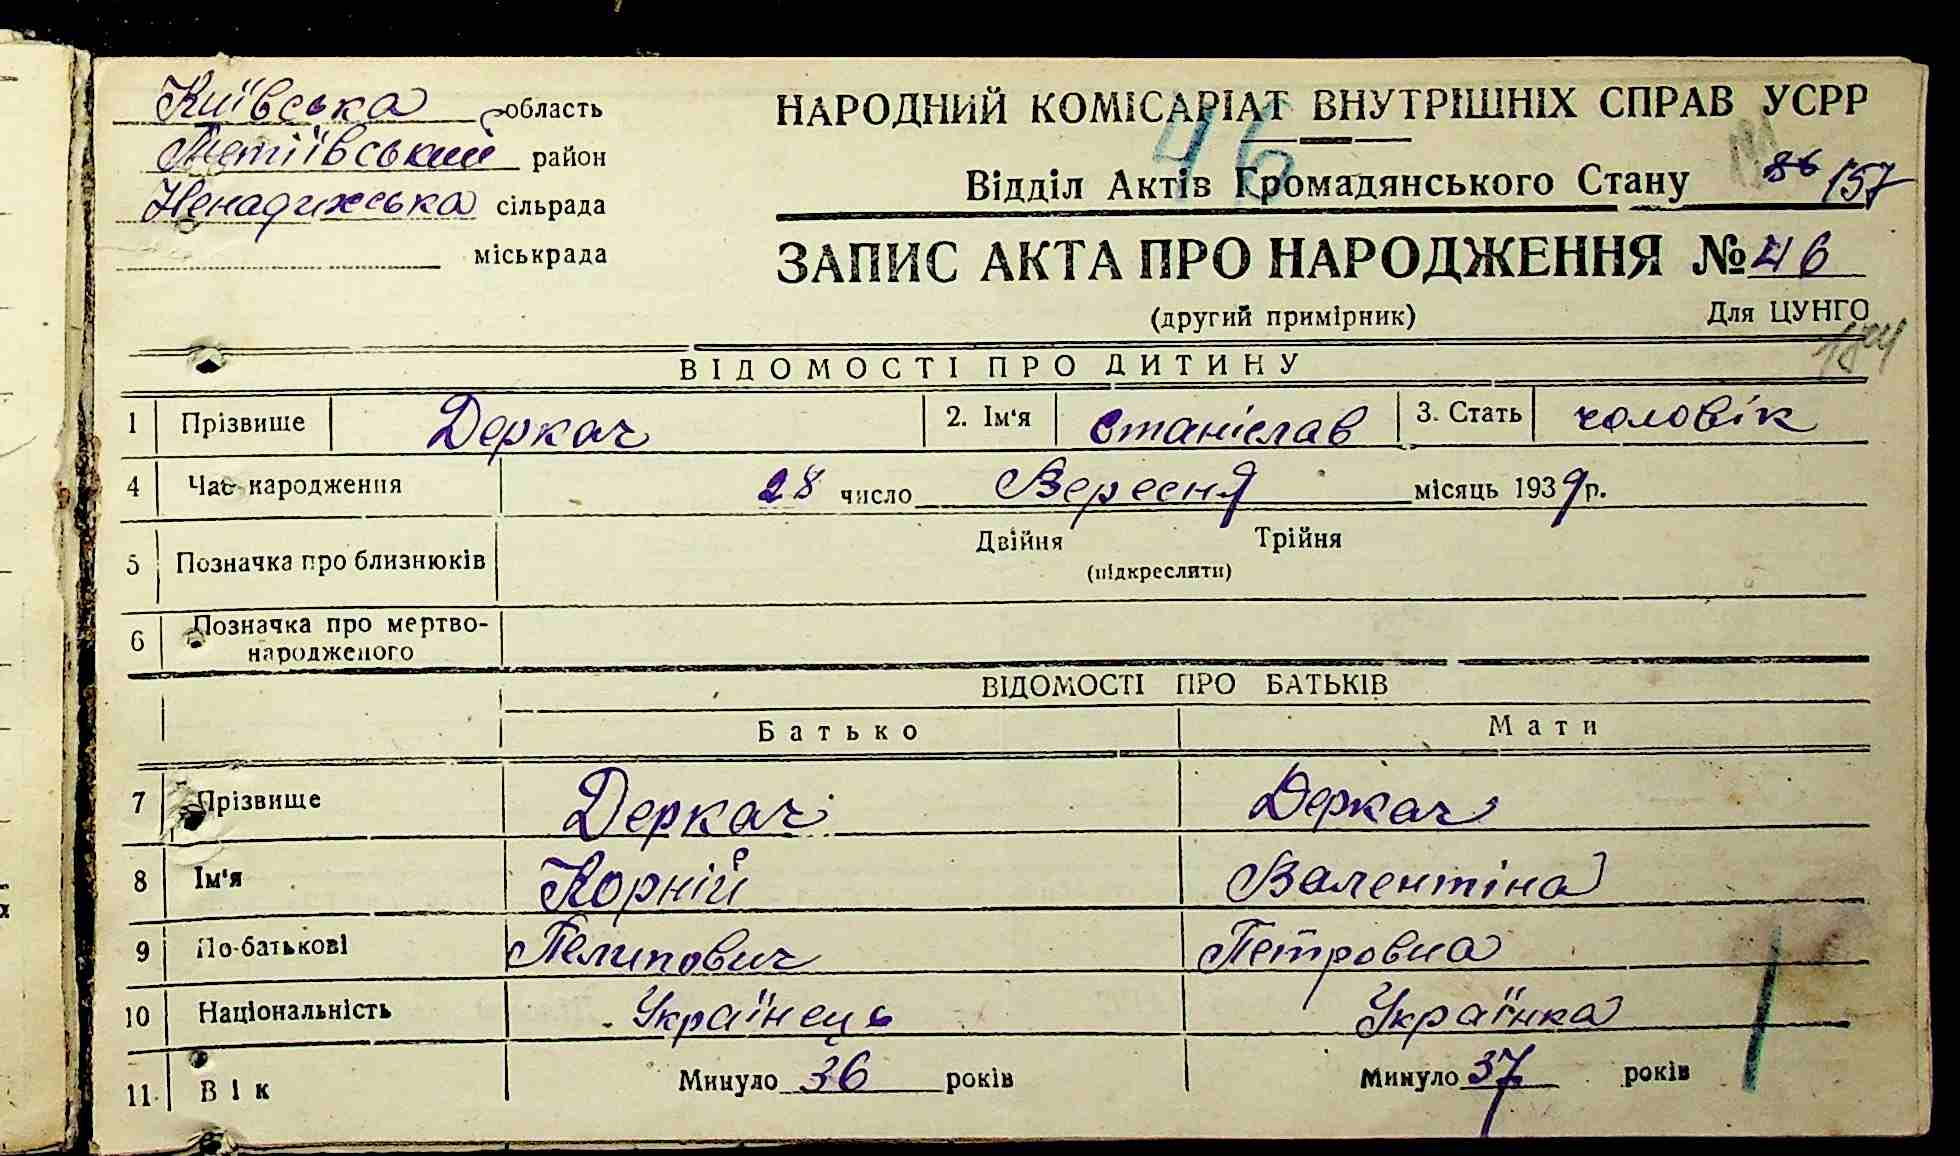 Київська область
Тетіївський район
Ненадихська сільрада
міськрада
НАРОДНИЙ КОМІСАРІАТ ВНУТРІШНІХ СПРАВ УСРР
46
Відділ Актів Громадянського Стану 86 157
ЗАПИС АКТА ПРО НАРОДЖЕННЯ № 46
(другий примірник) Для ЦУНГО
ВІДОМОСТІ ПРО ДИТИНУ
1 Прізвище Деркач 2. Ім'я Станіслав 3. Стать чоловік
4 Час народження 28 число Вересня місяць 1939 р.
5 Позначка про близнюків Двійня Трійня
(підкреслити)
6 Позначка про мертво-
народженого
ВІДОМОСТІ ПРО БАТЬКІВ
Батько Мати
7 Прізвище Деркач Деркач
8 Ім'я Корній Валентіна
9 По-батькові Пелипович Петровна
10 Національність Українець Українка
11 Вік Минуло 36 років Минуло 37 років